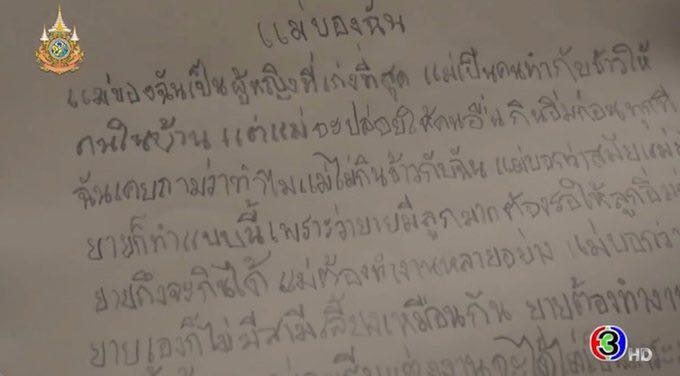 แม่ของฉัน
แม่ของฉันเป็นผู้หญิงที่เก่งที่สุด แม่เป็นคนทำกับข้าวให้
คนในบ้าน แต่แม่จะปล่อยให้คนอื่นกินอิ่มก่อนทุกที
ฉันเคยถามว่าทำไมแม่ไม่กินข้าวกับฉัน แม่บอกว่าสมัยแม่
ยายก็ทำแบบนี้ เพราะว่ายายมีลูกมาก ต้องรอให้ลูกอิ่ม
ยายถึงจะกินได้ แม่ต้องทำงานหลายอย่าง แม่บอกว่า
ยายเองก็ไม่มีสามีเลี้ยงเหมือนกัน ยายต้องทำงา
3 HD